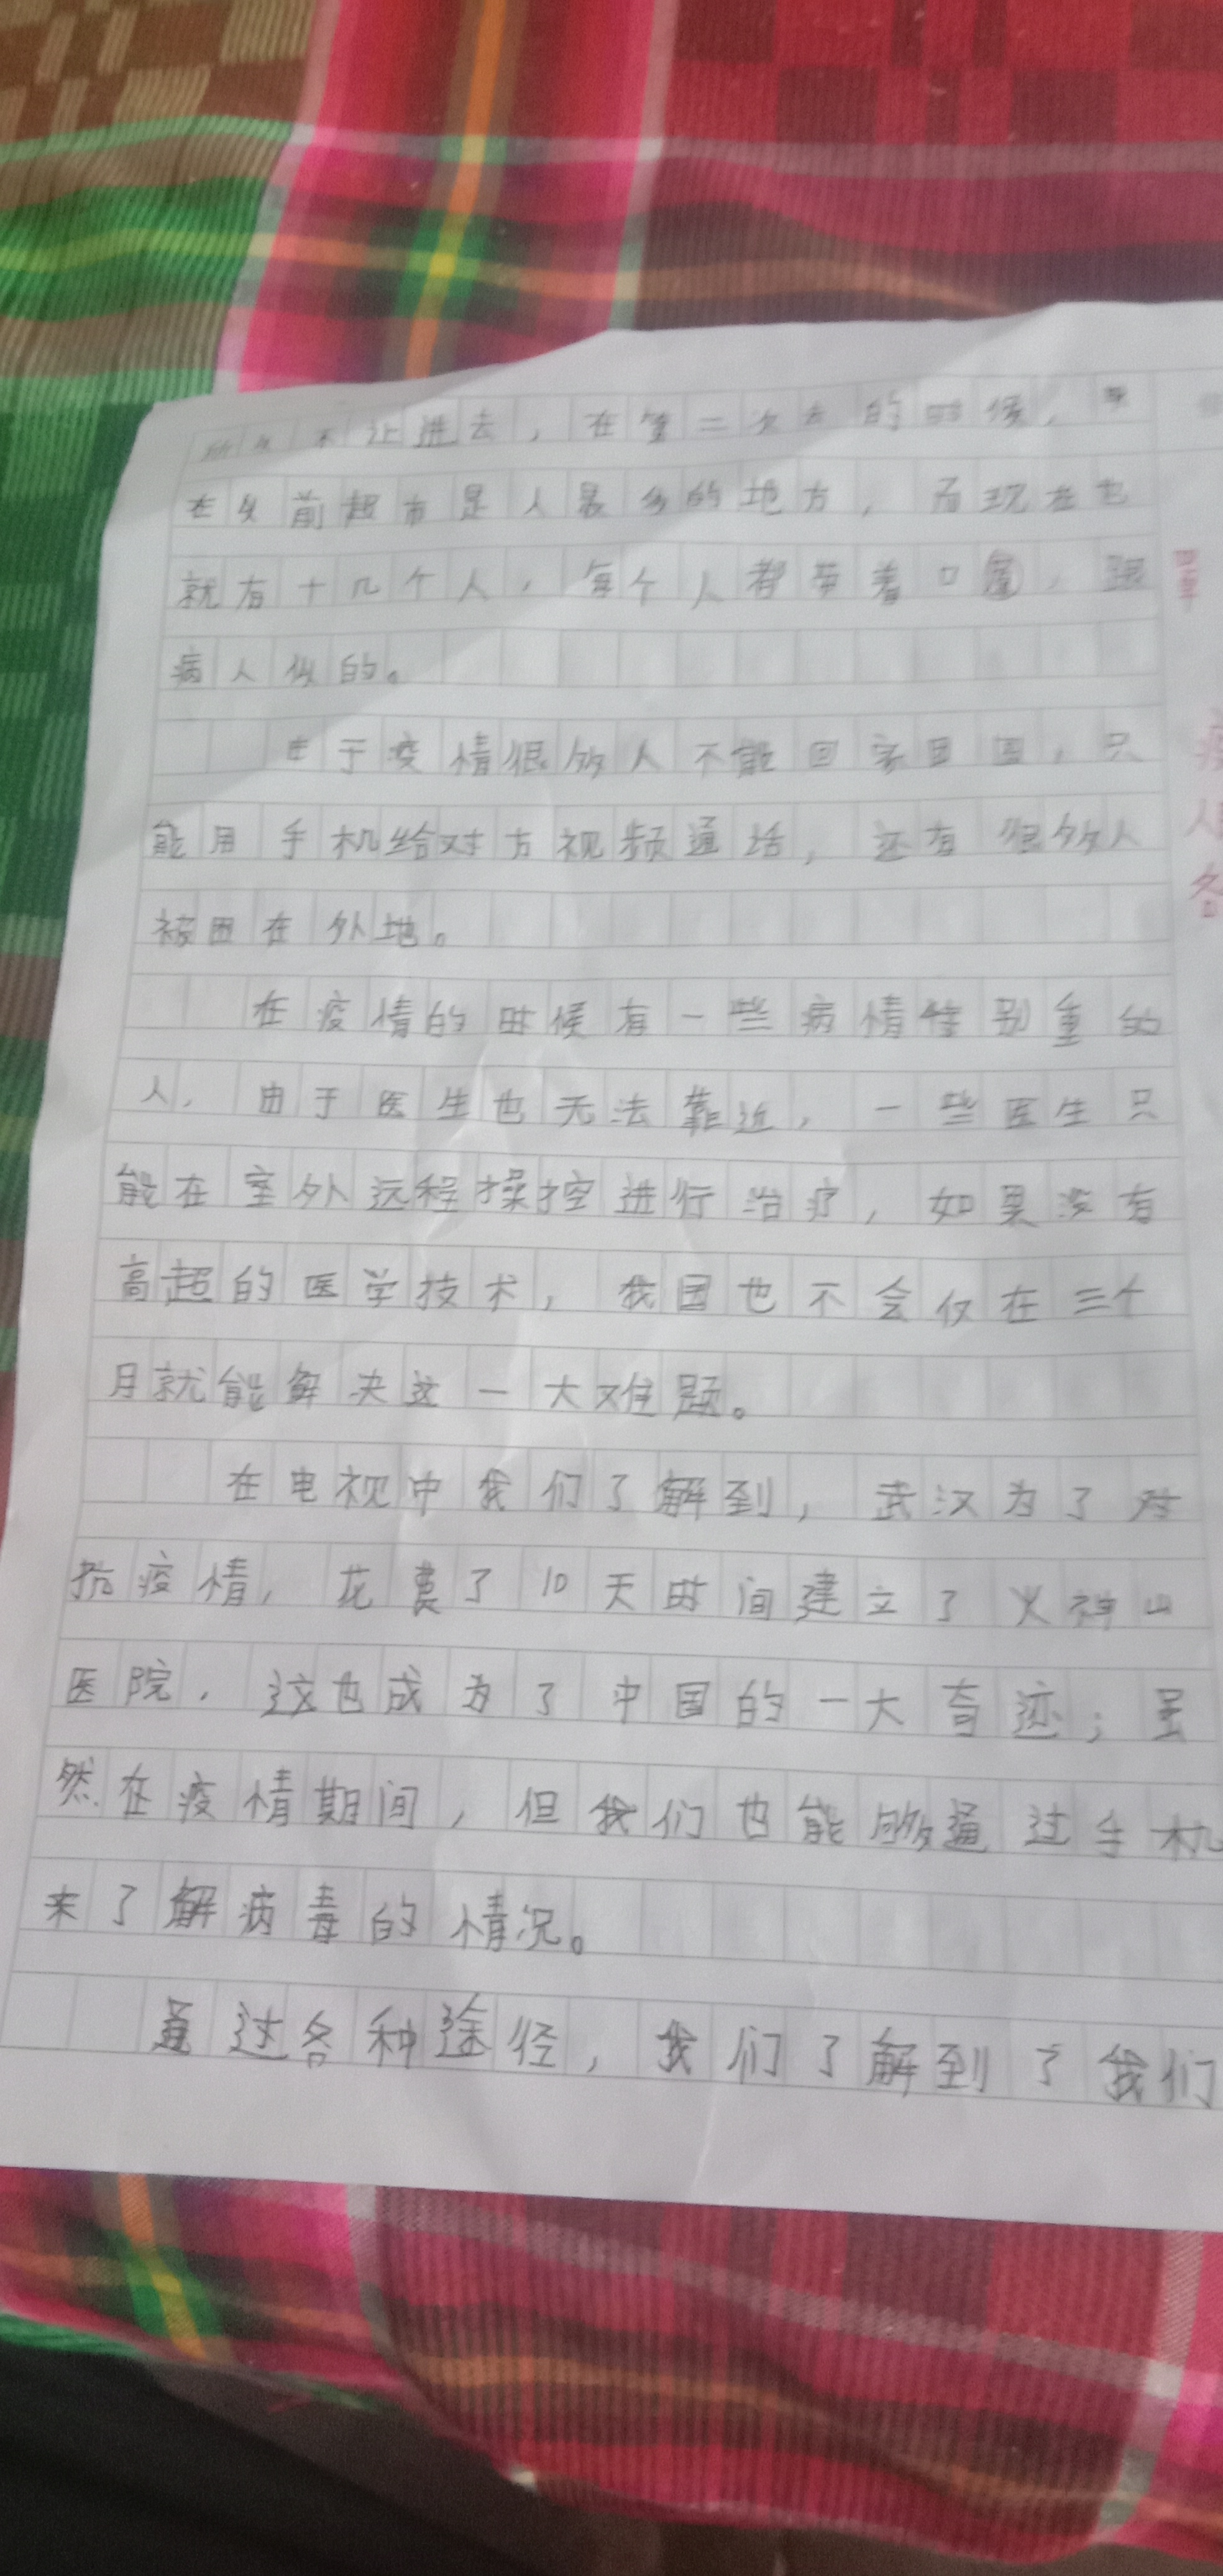 所以不让进去，在第二次去的时候，
在从前超市是人最多的地方，而现在也
就有十几个人，每个人都带着口罩，跟
病人似的。
由于疫情很多人不能回家团圆，只
能用手机给对方视频通话，还有很多人
被困在外地。
在疫情的时候有一些病情特别重的
人，由于医生也无法靠近，一些医生只
能在室外远程操控进行治疗，如果没有
高超的医学技术，我国也不会仅在三个
月就能解决这一大难题。
在电视中我们了解到，武汉为了对
抗疫情，花费了10天时间建立了火神山
医院，这也成为了中国的一大奇迹；虽
然在疫情期间，但我们也能够通过手机
来了解病毒的情况。
通过各种途径，我们了解到了我们
罩